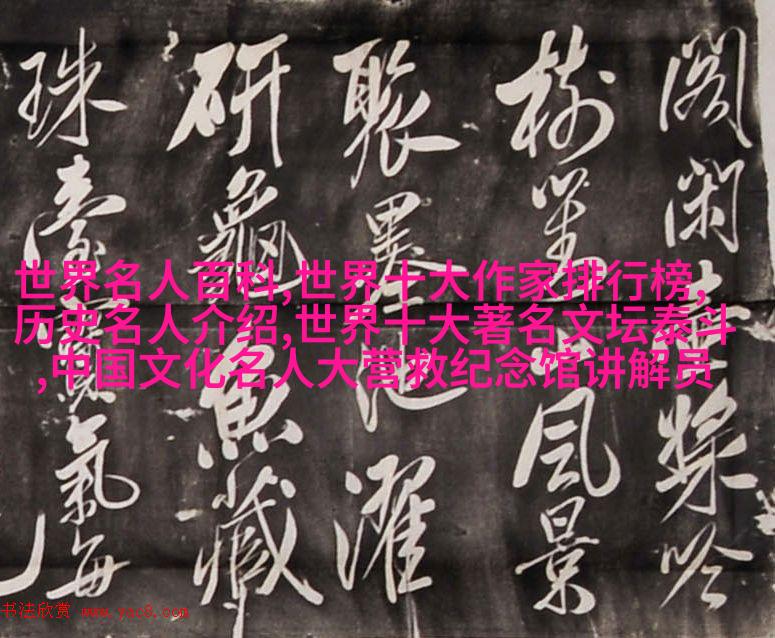 世界名人百科,世界十大作家排行榜,
历史名人介绍,世界十大著名文坛泰斗
,中国文化名人大营救纪念馆讲解员
阁闲吟
树风景
聚墨池濯
研龜魚藏
珠臺寶氣每
书法欣赏 www.yac8.com